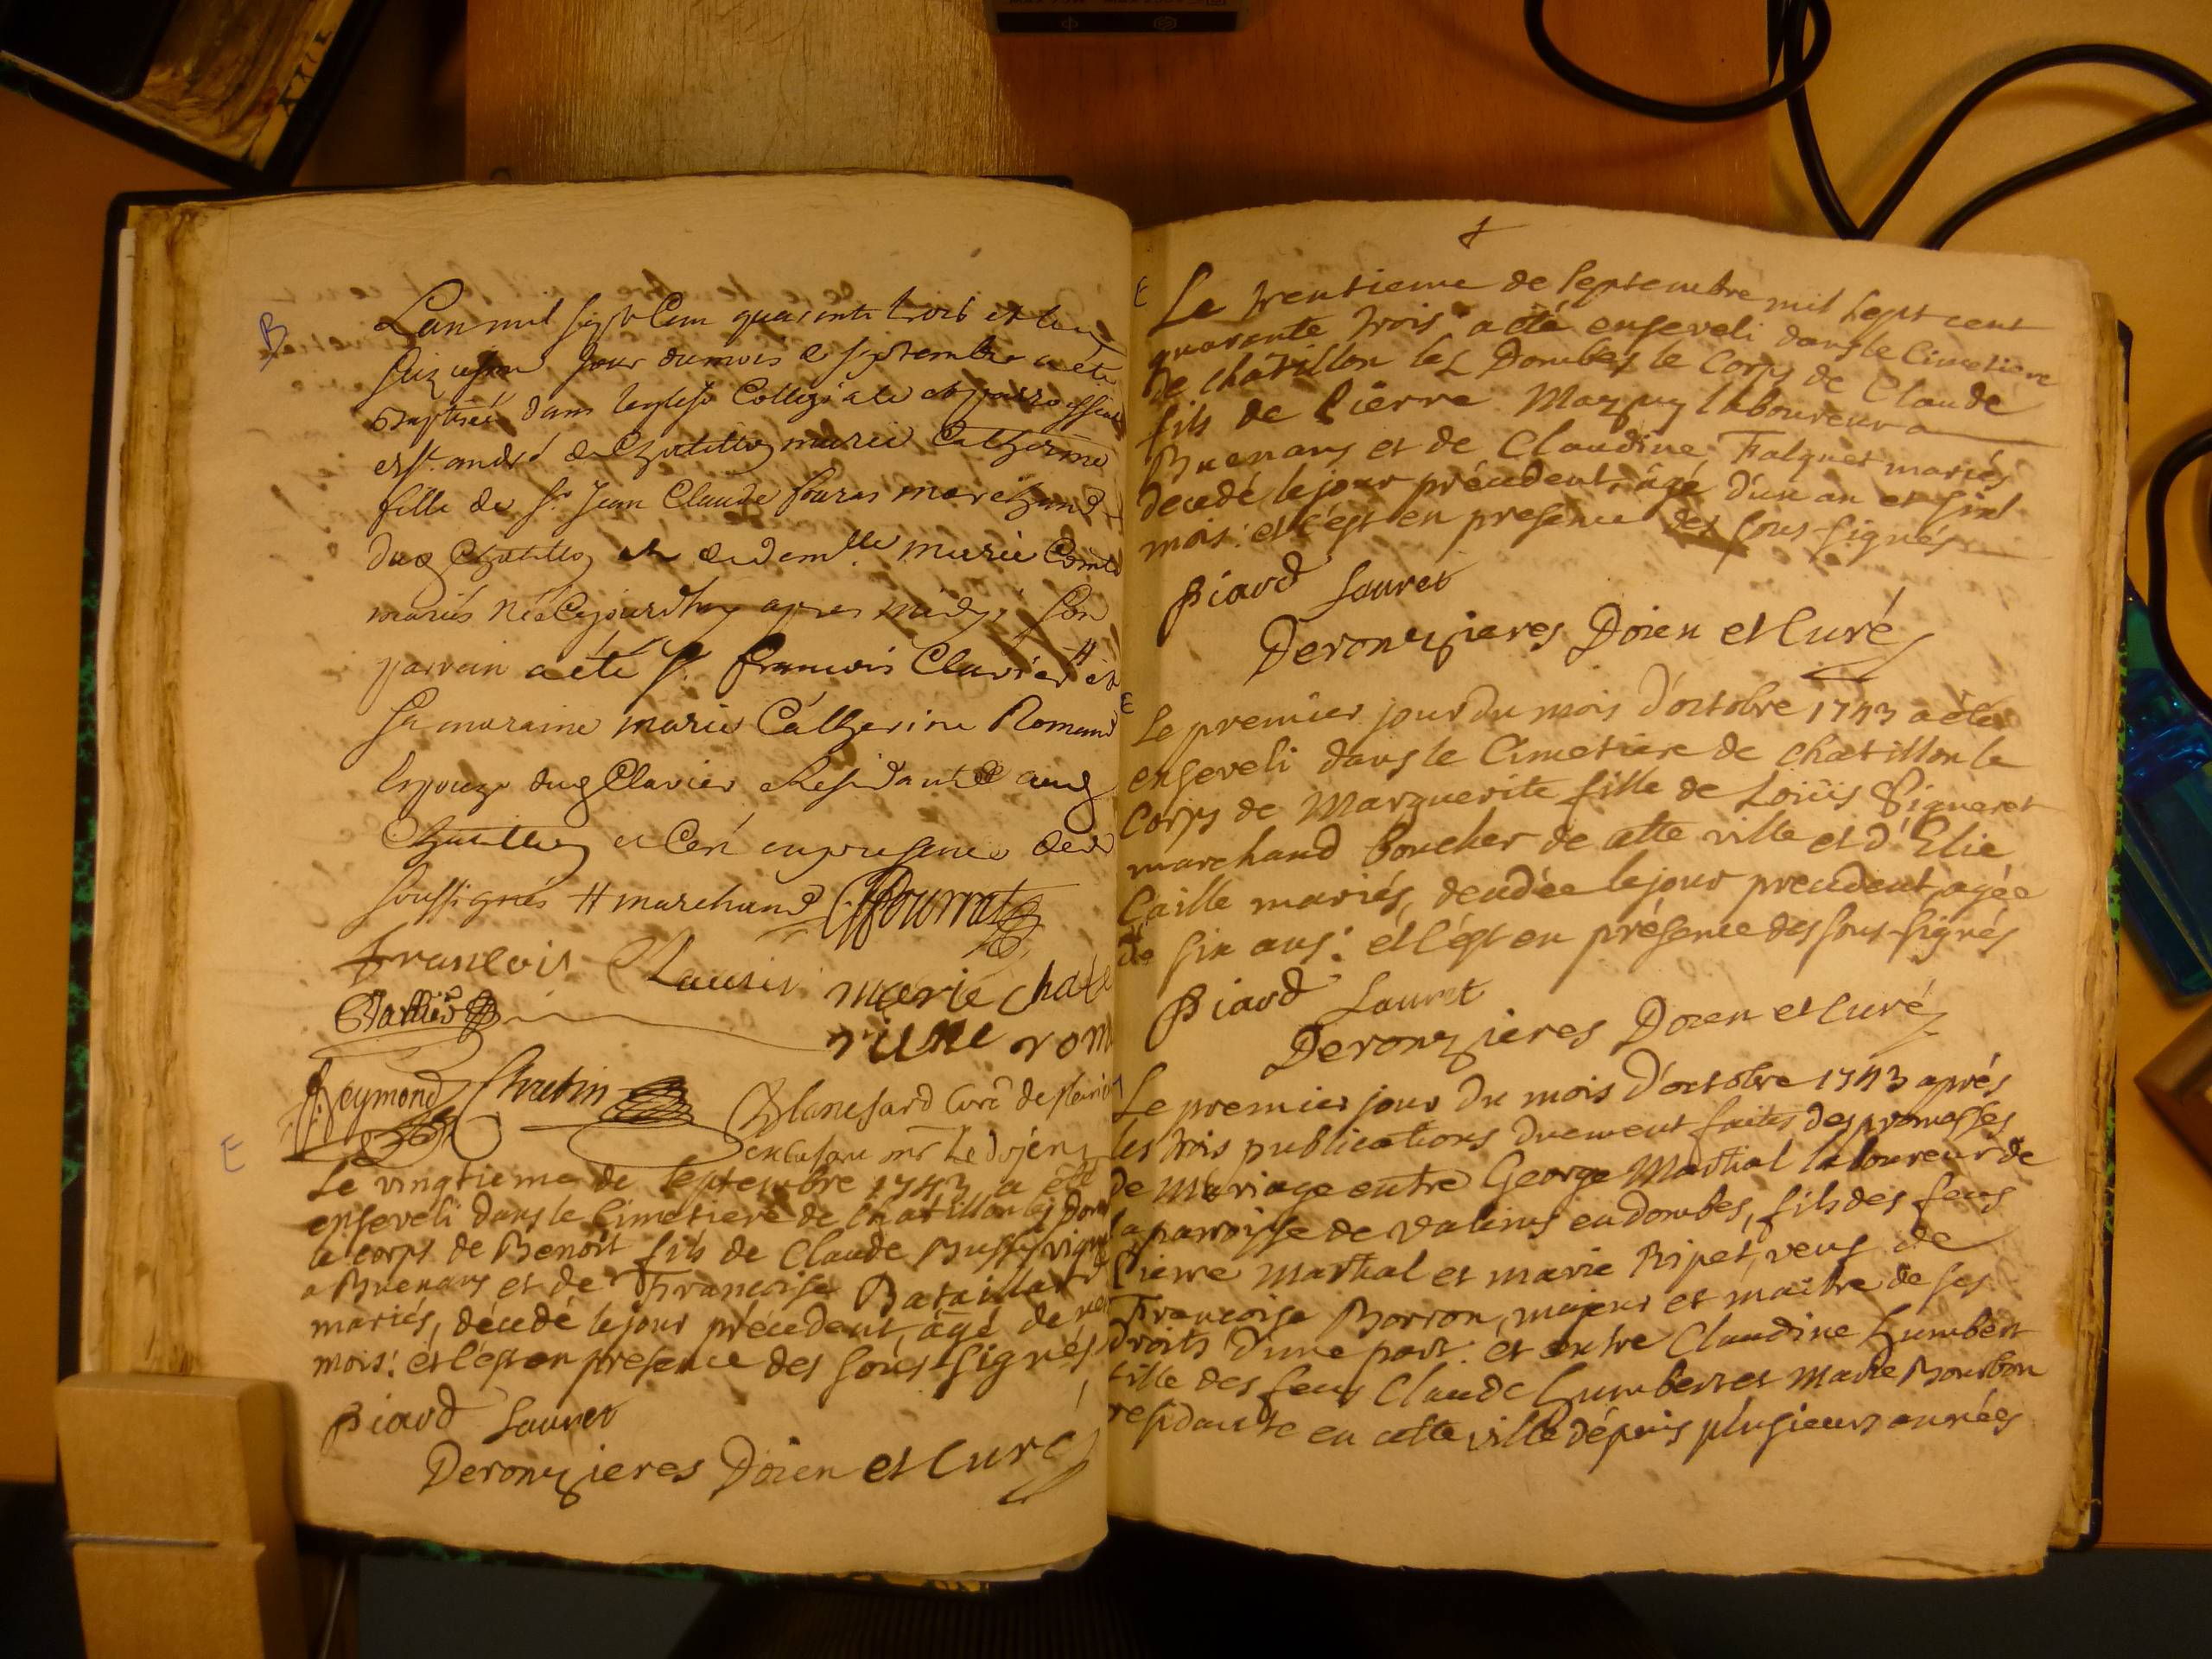 B
Lan mil sept Cem quarente trois et le
jour du mois de septembre a été
Baptisée dans leglise Collegiale et parroissialle
de st. andré de Chatillon marie Catherine
fille de sr. Jean Claude fourat marchand
dud Chatillon et de demlle marie Comte
mariés née Cejourdhuy apres midy, son
parrain a été sr. francois Clavier # et
sa maraine marie Catherine Romand
Epouze dud Clavier Residants aud
Chatillon et Ce en presence des
soussignés # marchand Fourrat
francois Clavier marie Chate
rine rom
Raymond Chretin Blanchard Curé de
en labsence mr Le doÿen
E
Le vingtieme de septembre 1743 a été
enseveli dans le Cimetiere de Chatillon les Dom
le corps de Benoit fils de Claude Buffy vign
a Buenans et de Francoise Bataillard
mariés, décedé le jour précedent, âgé de
mois: et c'est en presence des sous-signés
Piard Sauret
Deronzieres Doien et Curé
E
Le trentieme de septembre mil sept cent
quarante trois a été enseveli dans le Cimetiere
de châtillon les Dombes le Corps de Claude
fils de Pierre Mazuy laboureur a
Buenans et de Claudine Falquet mariés
décedé le jour précedent, âgé d'un an et six
mois: et c'est en presence des sous-signés
Piard Sauret
Deronzieres Doien et Curé
E
Le premier jour du mois d'octobre 1743 a été
enseveli dans le Cimetiere de chatillon le
Corps de Marguerite fille de Loüis Pigneret
marchand boucher de cette ville et d'Elie
Caille mariés, decedée le jour precedent, agée
de six ans: et c'est en présence des sous-signés
Piard Sauret
Deronzieres Doien et Curé
Le premier jour du mois d'octobre 1743 aprés
les trois publications duement faites des promesses
de Mariage entre George Martial laboureur de
la parroisse de valeins en dombes, fils des feus
Pierre Martial et marie Ripet, veuf de
Francoise Borron, majeur et maître de ses
droits d'une part: et entre Claudine Humbert
fille des feus Claude Humbert et Marie Bourbon
residante en cette ville dépuis plusieurs années